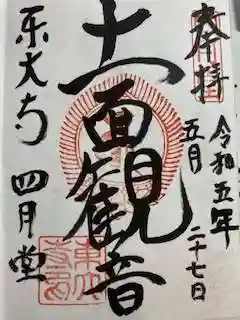 奉拝
令和五年
五月二十七日
十一面観音
東大寺 四月堂